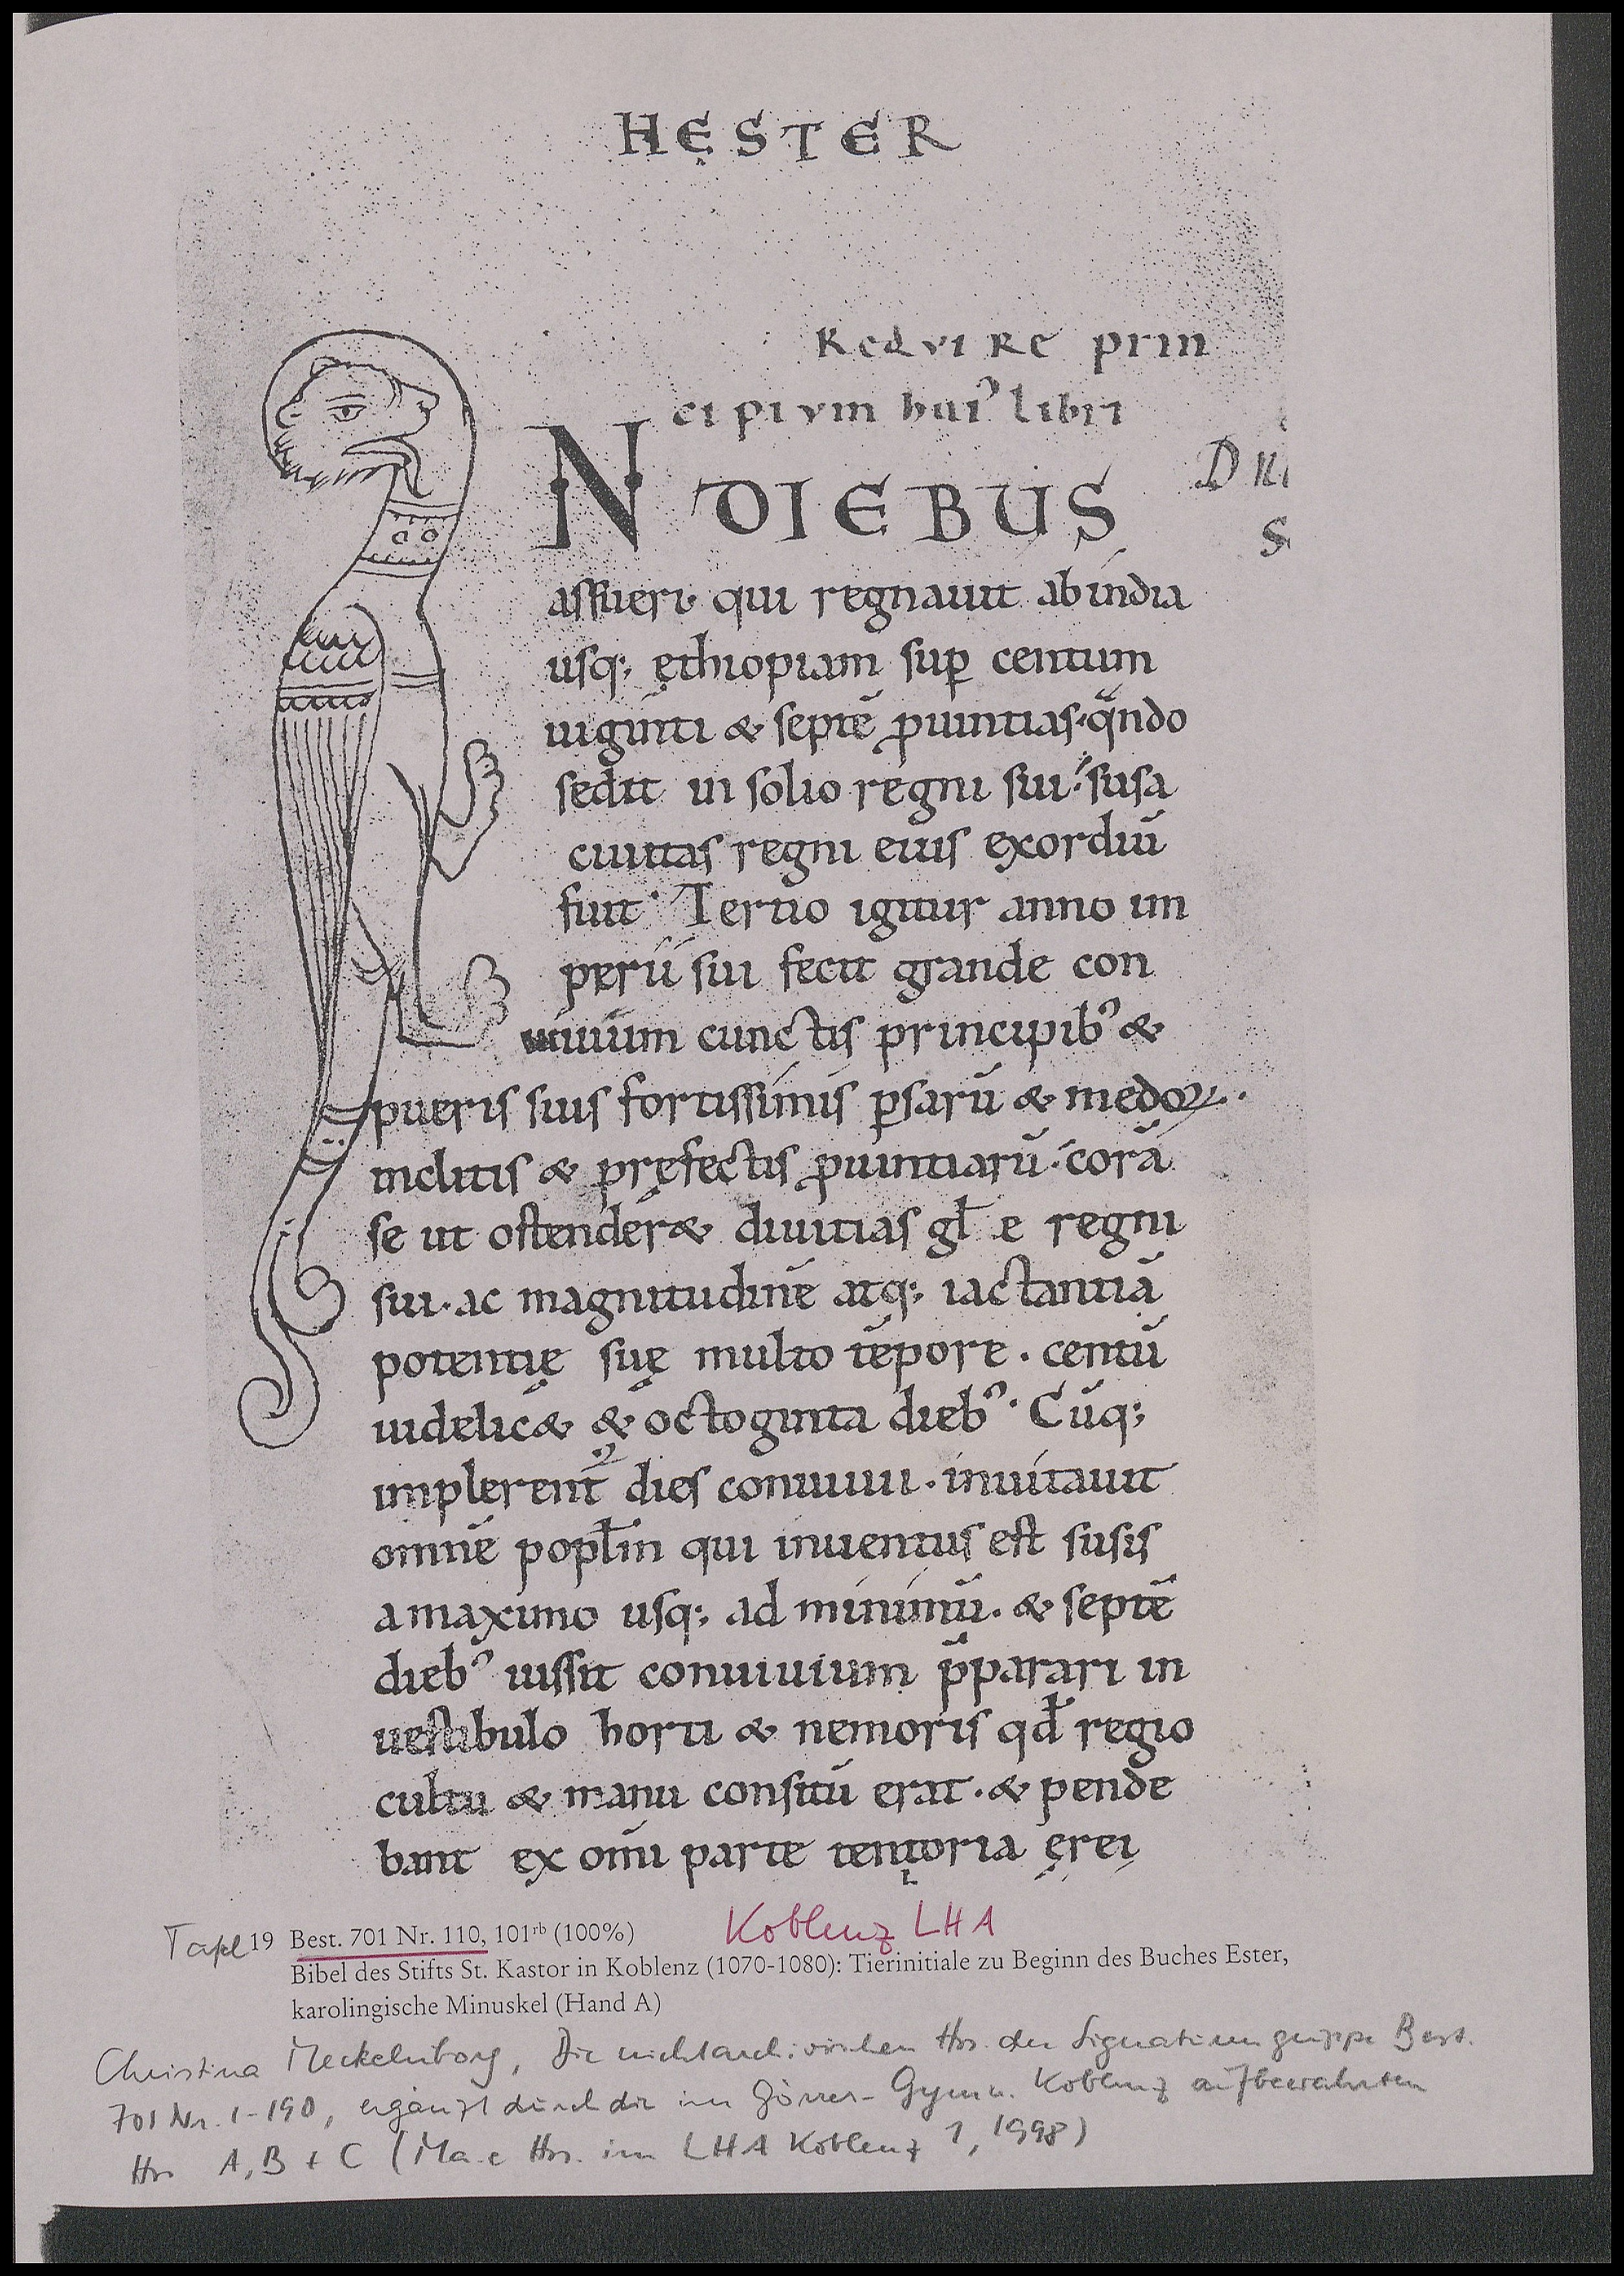 HĘSTER
Require prin
cipium hui᾿ libri
N DIEBUS
assueri· qui regnauit abindia
usq; ęthiopiam sup̲ centum
uiginti & septē ꝓuintias· q̄ndo
sedit in solio regni sui· susa
ciuitas regni eius exordiū
fuit· Tertio igitur anno im
perii sui fecit grande con
uiuium cunctis principib᾿ &
pueris suis fortissimis ꝑsarū & medoꝝ·
inclitis & pręfectis ꝓuintiarū· corā
se ut ostender& diuitias gl̄ e regni
sui· ac magnitudinē atq; iactantiā
potentię suę multo tēpore · centū
uidelic& & octoginta dieb᾿· Cūq;
implerent᾿ dies conuiuii· inuitauit
omnē popl̄m qui inuentus est susis
a maximo usq; ad minimū· & septē
dieb᾿ iussit conuiuium p̄parari in
uestibulo horti & nemoris qđ regio
cultu & manu consitū erat· & pende
bant ex om̄i parte tentoria ęrei
Koblenz LHA
Tafel 19 Best. 701 Nr. 110, 101rb (100%)
Bibel des Stifts St. Kastor in Koblenz (1070-1080): Tierinitiale zu Beginn des Buches Ester,
karolingische Minuskel (Hand A)
Christina Meckelnborg, Die nichtarchivischen Hss. der Signaturengruppe Best.
701 Nr. 1-190, ergänzt durch die im Görres-Gymn. Koblenz aufbewahrten
Hss A, B + C (Ma.e Hss. im LHA Koblenz 1, 1998)